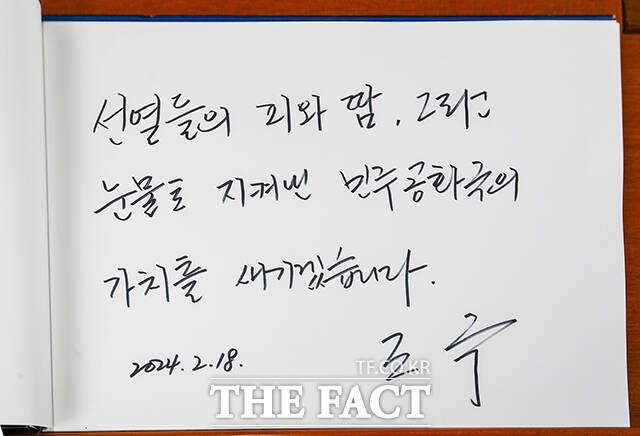 선열들의 피와 땀, 그리고
눈물로 지켜낸 민주공화국의
가치를 새기겠습니다.
2024. 2. 18.
조 국
TF.CO.KR
THE FACT